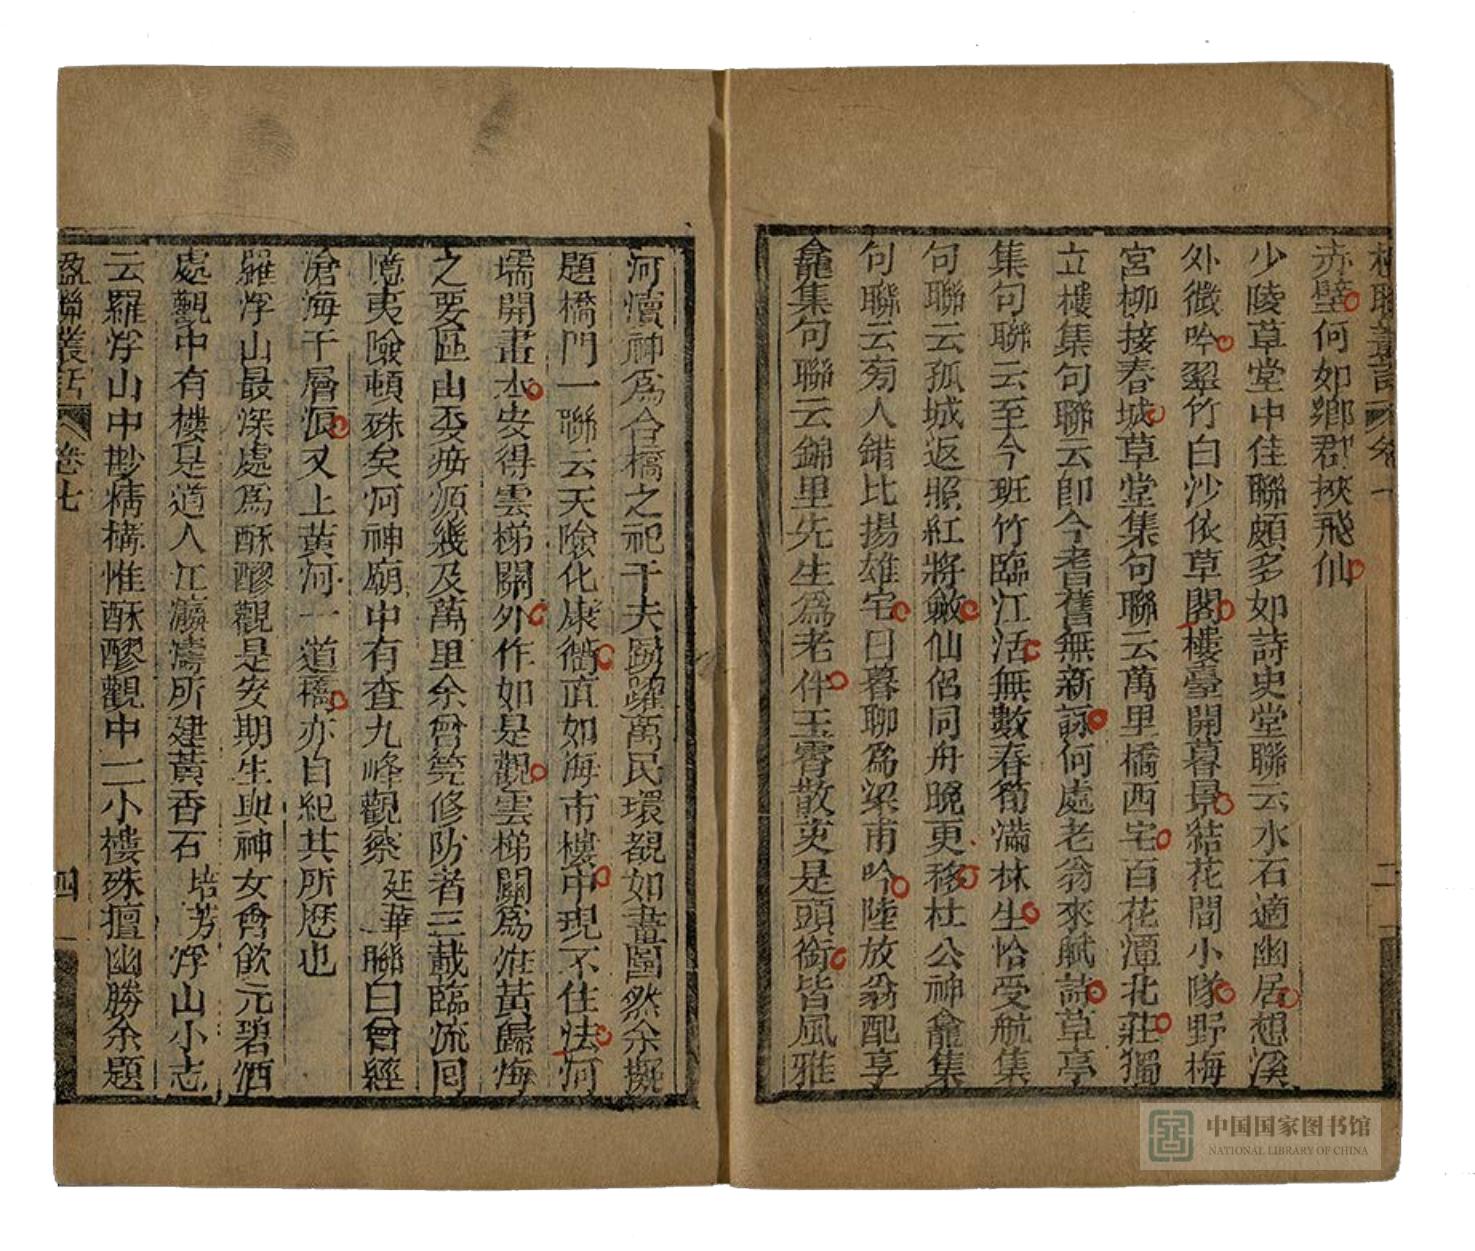 赤壁何如鄉郡挾飛仙
少陵草堂中佳聯頗多如詩史堂聯云水石適幽居想溪
外微吟翠竹白沙依草閣樓臺開暮景結花間小隊野梅
宮柳接春城草堂集句聯云萬里橋西宅百花潭北莊獨
立樓集句聯云卽今耆舊無新詠何處老翁來賦詩草亭
集句聯云至今班竹臨江活無數春筍滿林生恰受航集
句聯云孤城返照紅將斂仙侶同舟晚更移杜公神龕集
句聯云旁人錯比揚雄宅日暮聊爲梁甫吟陸放翁配享
龕集句聯云錦里先生爲老伴玉霄散吏是頭銜皆風雅
河瀆神爲合橋之祀千夫踴躍萬民環覩如畫圖然余擬
題橋門一聯云天險化康衢直如海市樓中現不住法河
壖開畫本安得雲梯關外作如是觀雲梯關爲淮黃歸海
之要區由委泝源幾及萬里余曾筦修防者三載臨流回
憶夷險頓殊矣河神廟中有查九峰觀察延華聯曰曾經
滄海千層浪又上黃河一道橋亦自紀其所歷也
羅浮山最深處爲酥醪觀是安期生與神女會飲元碧酒
處觀中有樓是道人江瀛濤所建黃香石培芳浮山小志
云羅浮山中尠精構惟酥醪觀中一二小樓殊擅幽勝余題
楹聯叢話 卷七 四
中国国家图书馆
NATIONAL LIBRARY OF CHINA